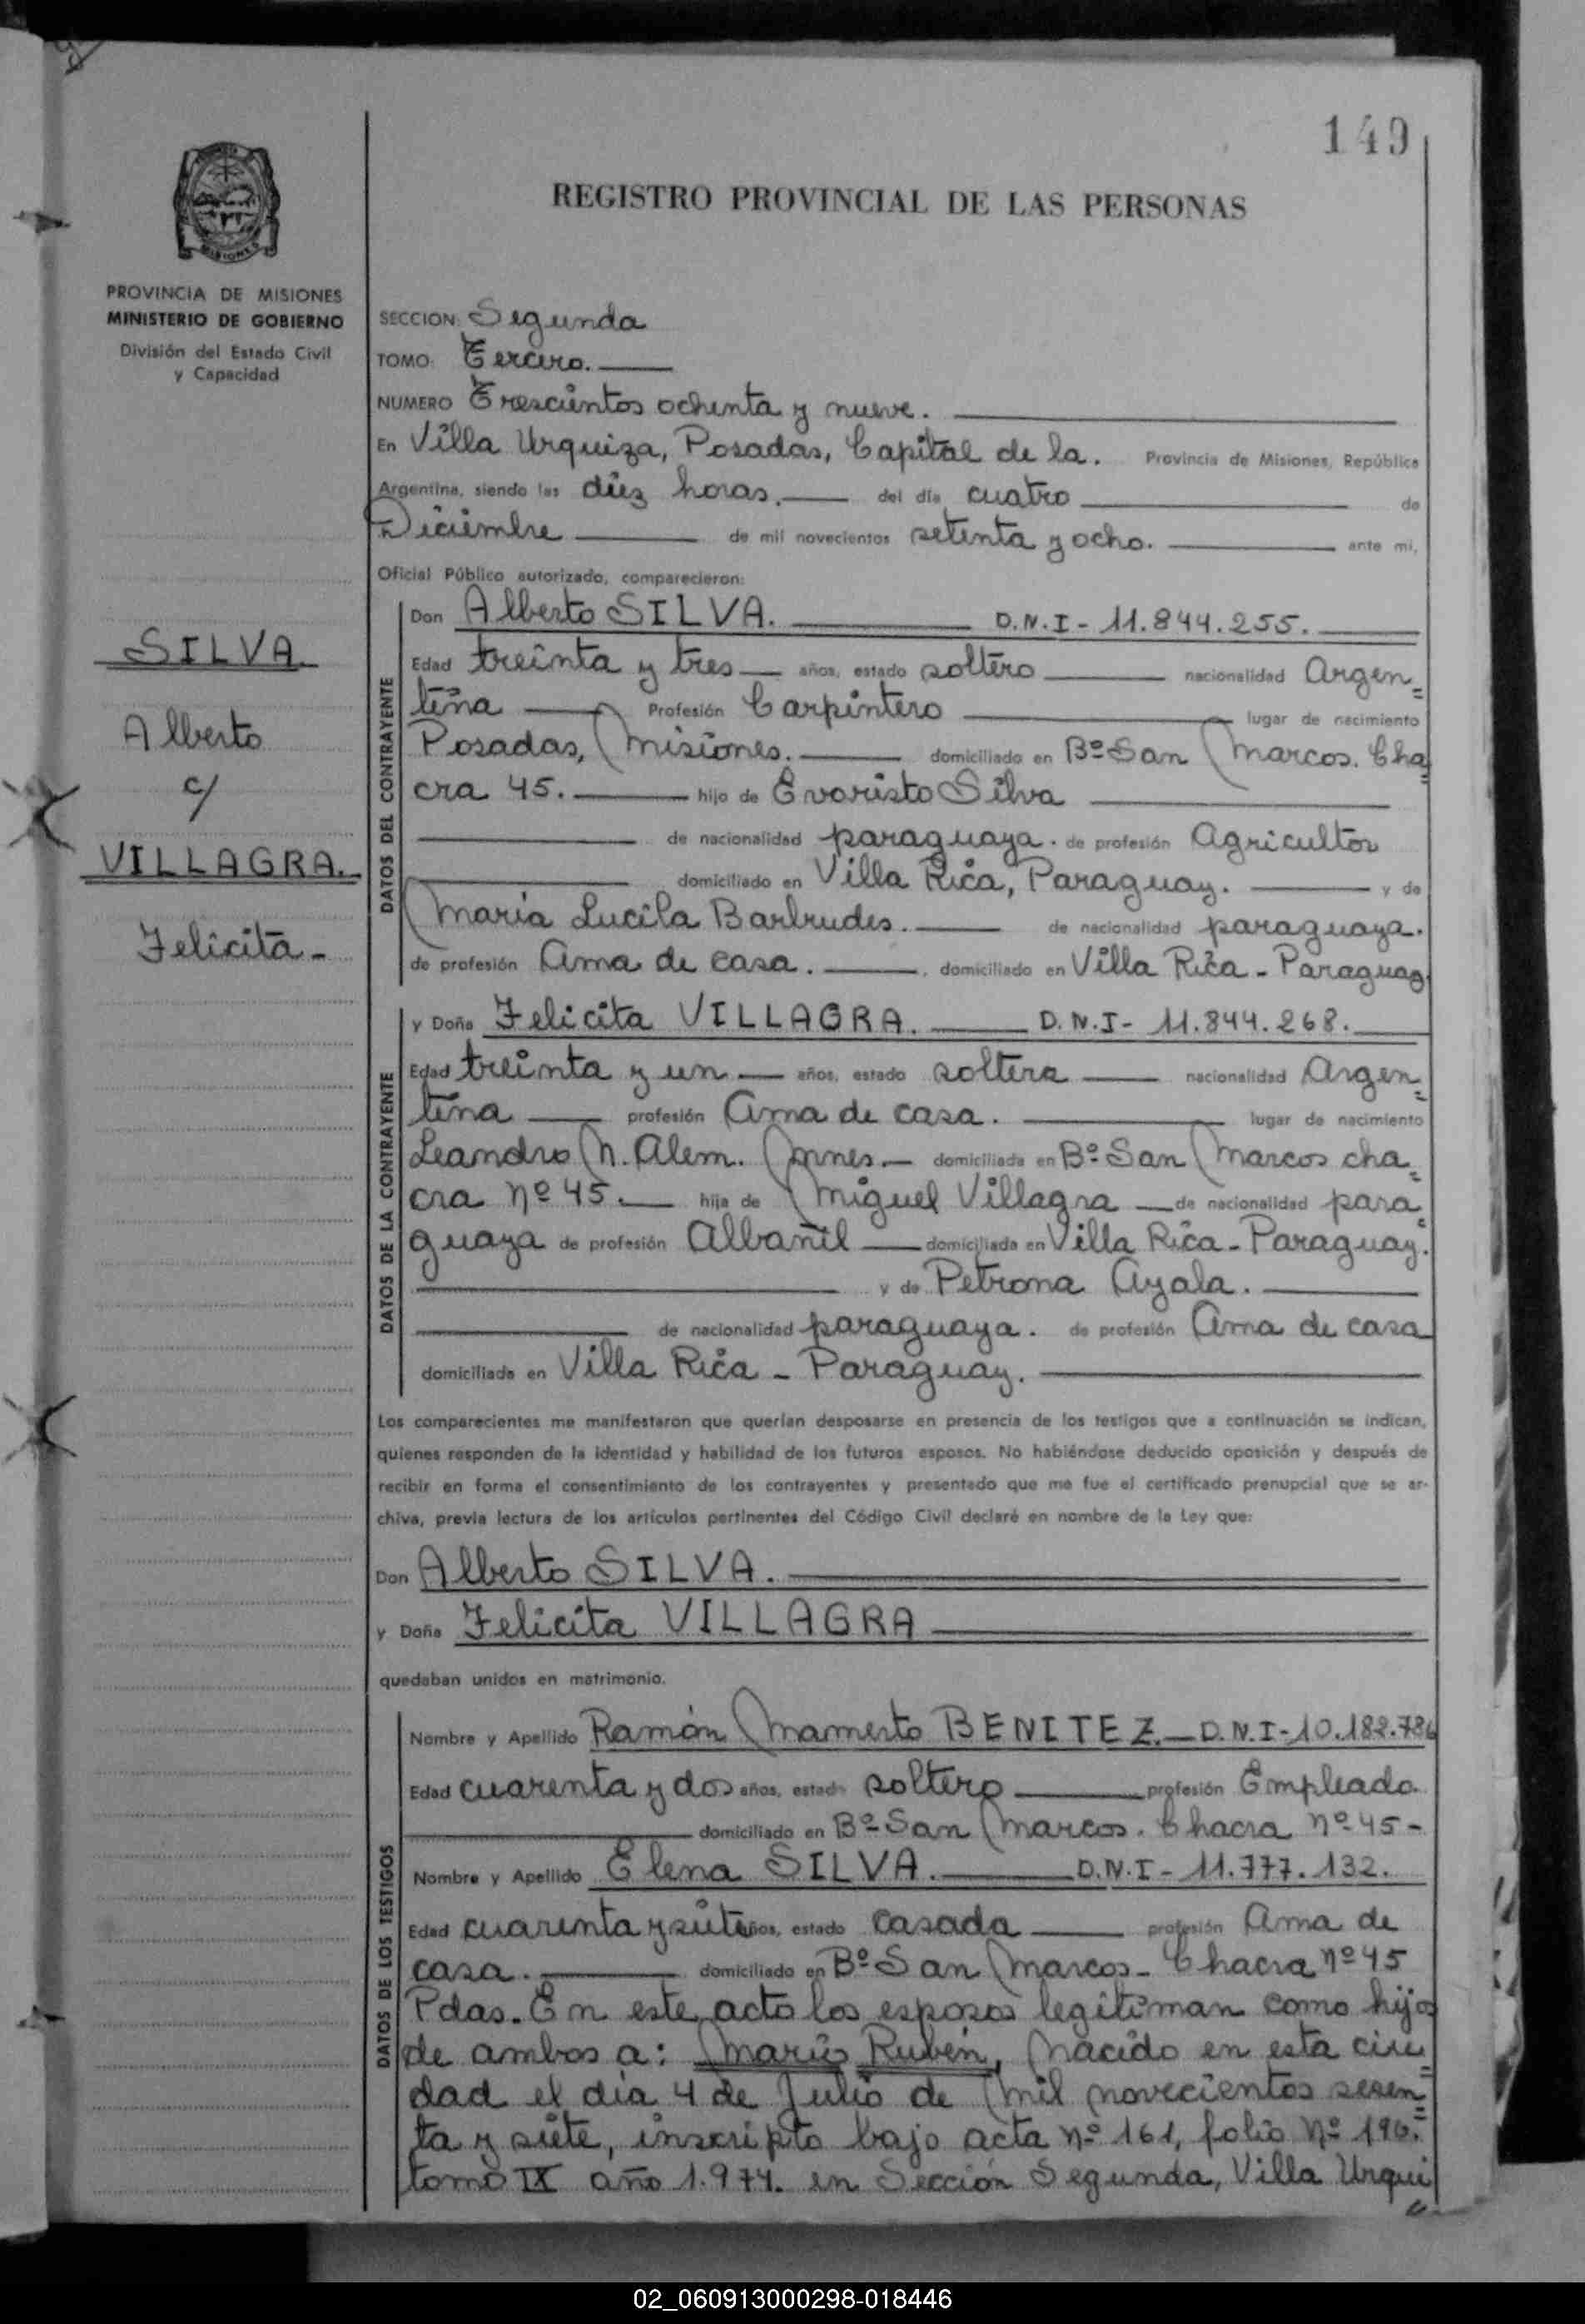 149
REGISTRO PROVINCIAL DE LAS PERSONAS
MISIONES
PROVINCIA DE MISIONES
MINISTERIO DE GOBIERNO
División del Estado Civil
y Capacidad
SILVA
Alberto
c/
VILLAGRA.
Felicita-
SECCION: Segunda
TOMO: Tercero.
NUMERO Trescientos ochenta y nueve.
En Villa Urquiza, Posadas, Capital de la. Provincia de Misiones, República
Argentina, siendo las diez horas. del día cuatro de
Diciembre de mil novecientos setenta y ocho. ante mi,
Oficial Público autorizado, comparecieron:
DATOS DEL CONTRAYENTE
Don Alberto SILVA. D.N.I- 11.844.255.
Edad treinta y tres años, estado soltero nacionalidad Argen=
tina Profesión Carpintero lugar de nacimiento
Posadas, Misiones. domiciliado en Bº San Marcos. Cha=
cra 45. hijo de Evaristo Silva
de nacionalidad paraguaya. de profesión Agricultor
domiciliado en Villa Rica, Paraguay. y de
Maria Lucila Barbudes. de nacionalidad paraguaya.
de profesión Ama de casa. domiciliado en Villa Rica - Paraguay
DATOS DE LA CONTRAYENTE
y Doña Felicita VILLAGRA. D.N.I- 11.844.268.
Edad treinta y un años, estado soltera nacionalidad Argen=
tina profesión Ama de casa. lugar de nacimiento
Leandro N. Alem. Mnes. domiciliada en Bº San Marcos cha=
cra nº 45. hija de Miguel Villagra de nacionalidad para=
guaya de profesión Albañil domiciliado en Villa Rica - Paraguay.
y de Petrona Ayala.
de nacionalidad paraguaya. de profesión Ama de casa
domiciliada en Villa Rica - Paraguay.
Los comparecientes me manifestaron que querían desposarse en presencia de los testigos que a continuación se indican,
quienes responden de la identidad y habilidad de los futuros esposos. No habiéndose deducido oposición y después de
recibir en forma el consentimiento de los contrayentes y presentado que me fue el certificado prenupcial que se ar-
chiva, previa lectura de los artículos pertinentes del Código Civil declaré en nombre de la Ley que:
Don Alberto SILVA.
y Doña Felicita VILLAGRA
quedaban unidos en matrimonio.
DATOS DE LOS TESTIGOS
Nombre y Apellido Ramón Mamerto BENITEZ. D.N.I-10.182.786
Edad cuarenta y dos años, estado soltero profesión Empleado
domiciliado en Bº San Marcos. Chacra nº 45-
Nombre y Apellido Elena SILVA. D.N.I- 11.777.132.
Edad cuarenta y siete años, estado casada profesión Ama de
casa. domiciliado en Bº San Marcos- Chacra nº 45
Pdas. En este acto los esposos legitiman como hijos
de ambos a: Mario Rubén, Nacido en esta ciu=
dad el día 4 de Julio de mil novecientos sesen=
ta y siete, inscripto bajo acta nº 161, folio nº 196.
tomo IX año 1.974. en Sección Segunda, Villa Urqui=
02_060913000298-018446